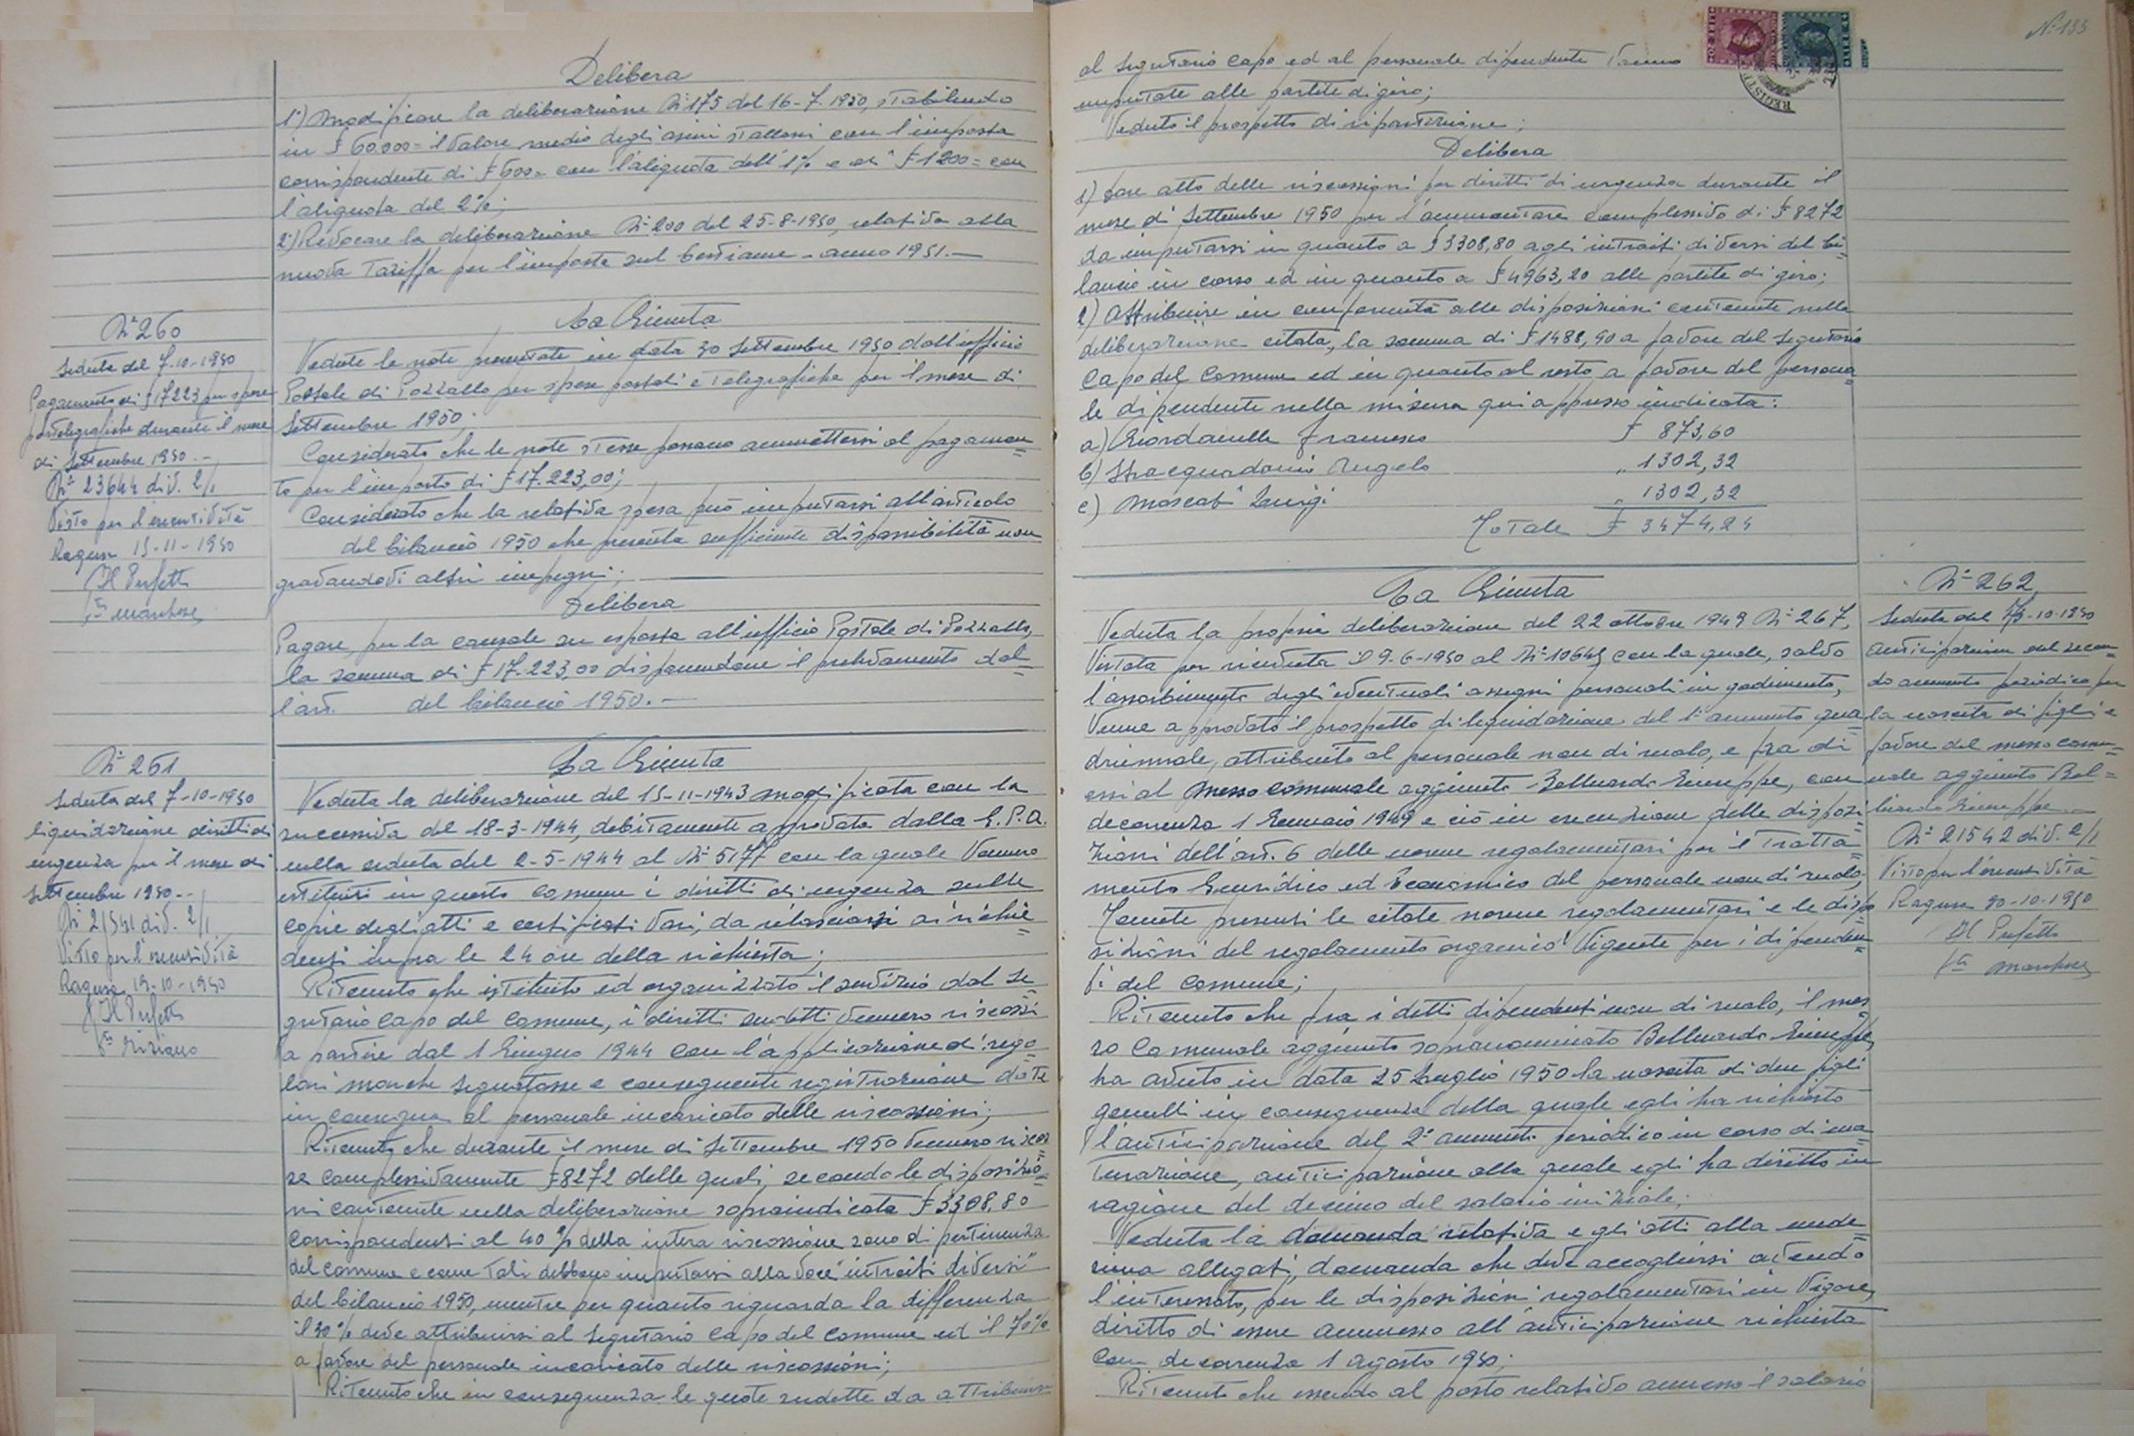 Delibera
1°) Modificare la deliberazione N° 175 del 16-7-1950, stabilendo
in £ 60.000= il valore medio degli asini stalloni con l'imposta
corrispondente di £ 600= con l'aliquota dell'1% e di £ 1200= con
l'aliquota del 2%;
2°) Revocare la deliberazione N° 200 del 25-8-1950, relativa alla
nuova tariffa per l'imposta sul bestiame - anno 1951.-
N° 260
Seduta del 7-10-1950
Pagamento di £ 17223 per spese
postelegrafiche durante il mese
di Settembre 1950.-
N° 23644 div. 2/1
Visto per l'esecutività
Ragusa 15-11-1950
Il Prefetto
La Giunta
Vedute le note presentate in data 30 Settembre 1950 dall'ufficio
Postale di Pozzallo per spese postali e telegrafiche per il mese di
Settembre 1950;
Considerato che le note stesse possono ammettersi al pagamen=
to per l'importo di £ 17.223,00;
Considerato che la relativa spesa può imputarsi all'articolo
del bilancio 1950 che presenta sufficiente disponibilità non
gravandovi altri impegni;
Delibera
Pagare, per la causale su esposta all'ufficio Postale di Pozzallo,
la somma di £ 17.223,00 disponendone il prelevamento dal=
l'art. del bilancio 1950.-
N° 261
Seduta del 7-10-1950
liquidazione diritti di
urgenza per il mese di
Settembre 1950.-
N° 21541 div. 2/1
Visto per l'esecutività
Ragusa 19-10-1950
Il Prefetto
La Giunta
Veduta la deliberazione del 15-11-1943 modificata con la
successiva del 18-3-1944, debitamente approvata dalla G.P.A.
nella seduta del 2-5-1944 al N° 5177 con la quale vennero
istituiti in questo Comune i diritti di urgenza sulle
copie degli atti e certificati vari, da rilasciarsi ai richie=
denti infra le 24 ore della richiesta;
Ritenuto che istituito ed organizzato il servizio dal Se=
gretario Capo del Comune, i diritti suddetti vennero riscossi
a partire dal 1 Giugno 1944 con l'applicazione di rego=
lari marche segnatasse e conseguente registrazione date
in consegna al personale incaricato delle riscossioni;
Ritenuto che durante il mese di Settembre 1950 vennero riscos=
se complessivamente £ 8272 delle quali, secondo le disposizio=
ni contenute nella deliberazione sopraindicata £ 3308,80
corrispondenti al 40% della intera riscossione sono di pertinenza
del Comune e come tali debbono imputarsi alla voce "introiti diversi"
del bilancio 1950, mentre per quanto riguarda la differenza
il 30% deve attribuirsi al Segretario Capo del Comune ed il 70%
a favore del personale incaricato delle riscossioni;
Ritenuto che in conseguenza le quote sudette da attribuirsi
N° 133
al Segretario Capo ed al personale dipendente vanno
imputate alle partite di giro;
Veduto il prospetto di ripartizione;
Delibera
1) Dare atto delle riscossioni per diritti di urgenza durante il
mese di Settembre 1950 per l'ammontare complessivo di £ 8272
da imputarsi in quanto a £ 3308,80 agli introiti diversi del bi=
lancio in corso ed in quanto a £ 4963,20 alle partite di giro;
2) Attribuire in conformità alle disposizioni contenute nella
deliberazione citata, la somma di £ 1488,90 a favore del Segretario
Capo del Comune ed in quanto al resto a favore del persona=
le dipendente nella misura qui appresso indicata:
a) Giordanella Francesco £ 873,60
b) Stracquadanio Angelo " 1302,32
c) Moscati Luigi " 1302,32
Totale £ 3474,24
La Giunta
Veduta la propria deliberazione del 22 ottobre 1949 N° 267,
vistata per ricevuta il 9-6-1950 al N° 10645 con la quale, salvo
l'assorbimento degli eventuali assegni personali in godimento,
venne approvato il prospetto di liquidazione del 1° aumento qua=
driennale, attribuito al personale non di ruolo, e fra di
essi al Messo Comunale aggiunto Belluardo Giuseppe, con
decorrenza 1 Gennaio 1949 e ciò in esecuzione delle disposi=
zioni dell'art. 6 delle norme regolamentari per il tratta=
mento Giuridico ed Economico del personale non di ruolo;
Tenute presenti le citate norme regolamentari e le dispo
sizioni del regolamento organico vigente per i dipenden=
ti del Comune;
Ritenuto che fra i detti dipendenti non di ruolo, il mes
so Comunale aggiunto sopranominato Belluardo Giuseppe,
ha avuto in data 25 Luglio 1950 la nascita di due figli
gemelli in conseguenza della quale egli ha richiesto
l'anticipazione del 2° aumento periodico in corso di ma=
turazione, anticipazione alla quale egli ha diritto in
ragione del decimo del salario iniziale;
Veduta la domanda relativa e gli atti alla mede
sima allegati, domanda che deve accogliersi avendo
l'interessato, per le disposizioni regolamentari in vigore,
diritto di essere ammesso all'anticipazione richiesta
con decorrenza 1 agosto 1950;
Ritenuto che essendo al posto relativo annesso il salario
N° 262
Seduta del 7-10-1950
anticipazione del secon=
do aumento periodico per
la nascita di figli a
favore del messo comu=
nale aggiunto Bel=
luardo Giuseppe.-
N° 21542 div. 2/1
Visto per l'esecutività
Ragusa 30-10-1950
Il Prefetto